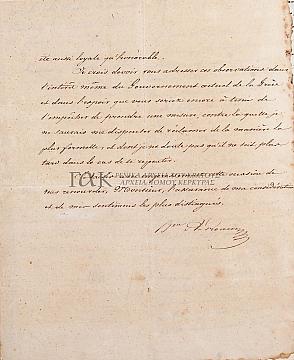 été aussi loyale qu'honorable.
Je crois devoir vous adresser ces observations dans
l'intérêt même du Gouvernement actuel de la Grèce
et dans l'espoir que vous seriez encore à tems de
l'empêcher de prendre une mesure, contre laquelle je
ne saurais me dispenser de réclamer de la manière la
plus formelle, et dont je ne doute pas qu'il ne soit plus
tard dans le cas de se repentir.
cette occasion de
vous renouveler, Monsieur, l'assurance de ma considération
et de mes sentimens les plus distingués.
γακ
ΓΕΝΙΚΑ ΑΡΧΕΙΑ ΤΟΥ ΚΡΑΤΟΥΣ
ΑΡΧΕΙΑ ΝΟΜΟΥ ΚΕΡΚΥΡΑΣ